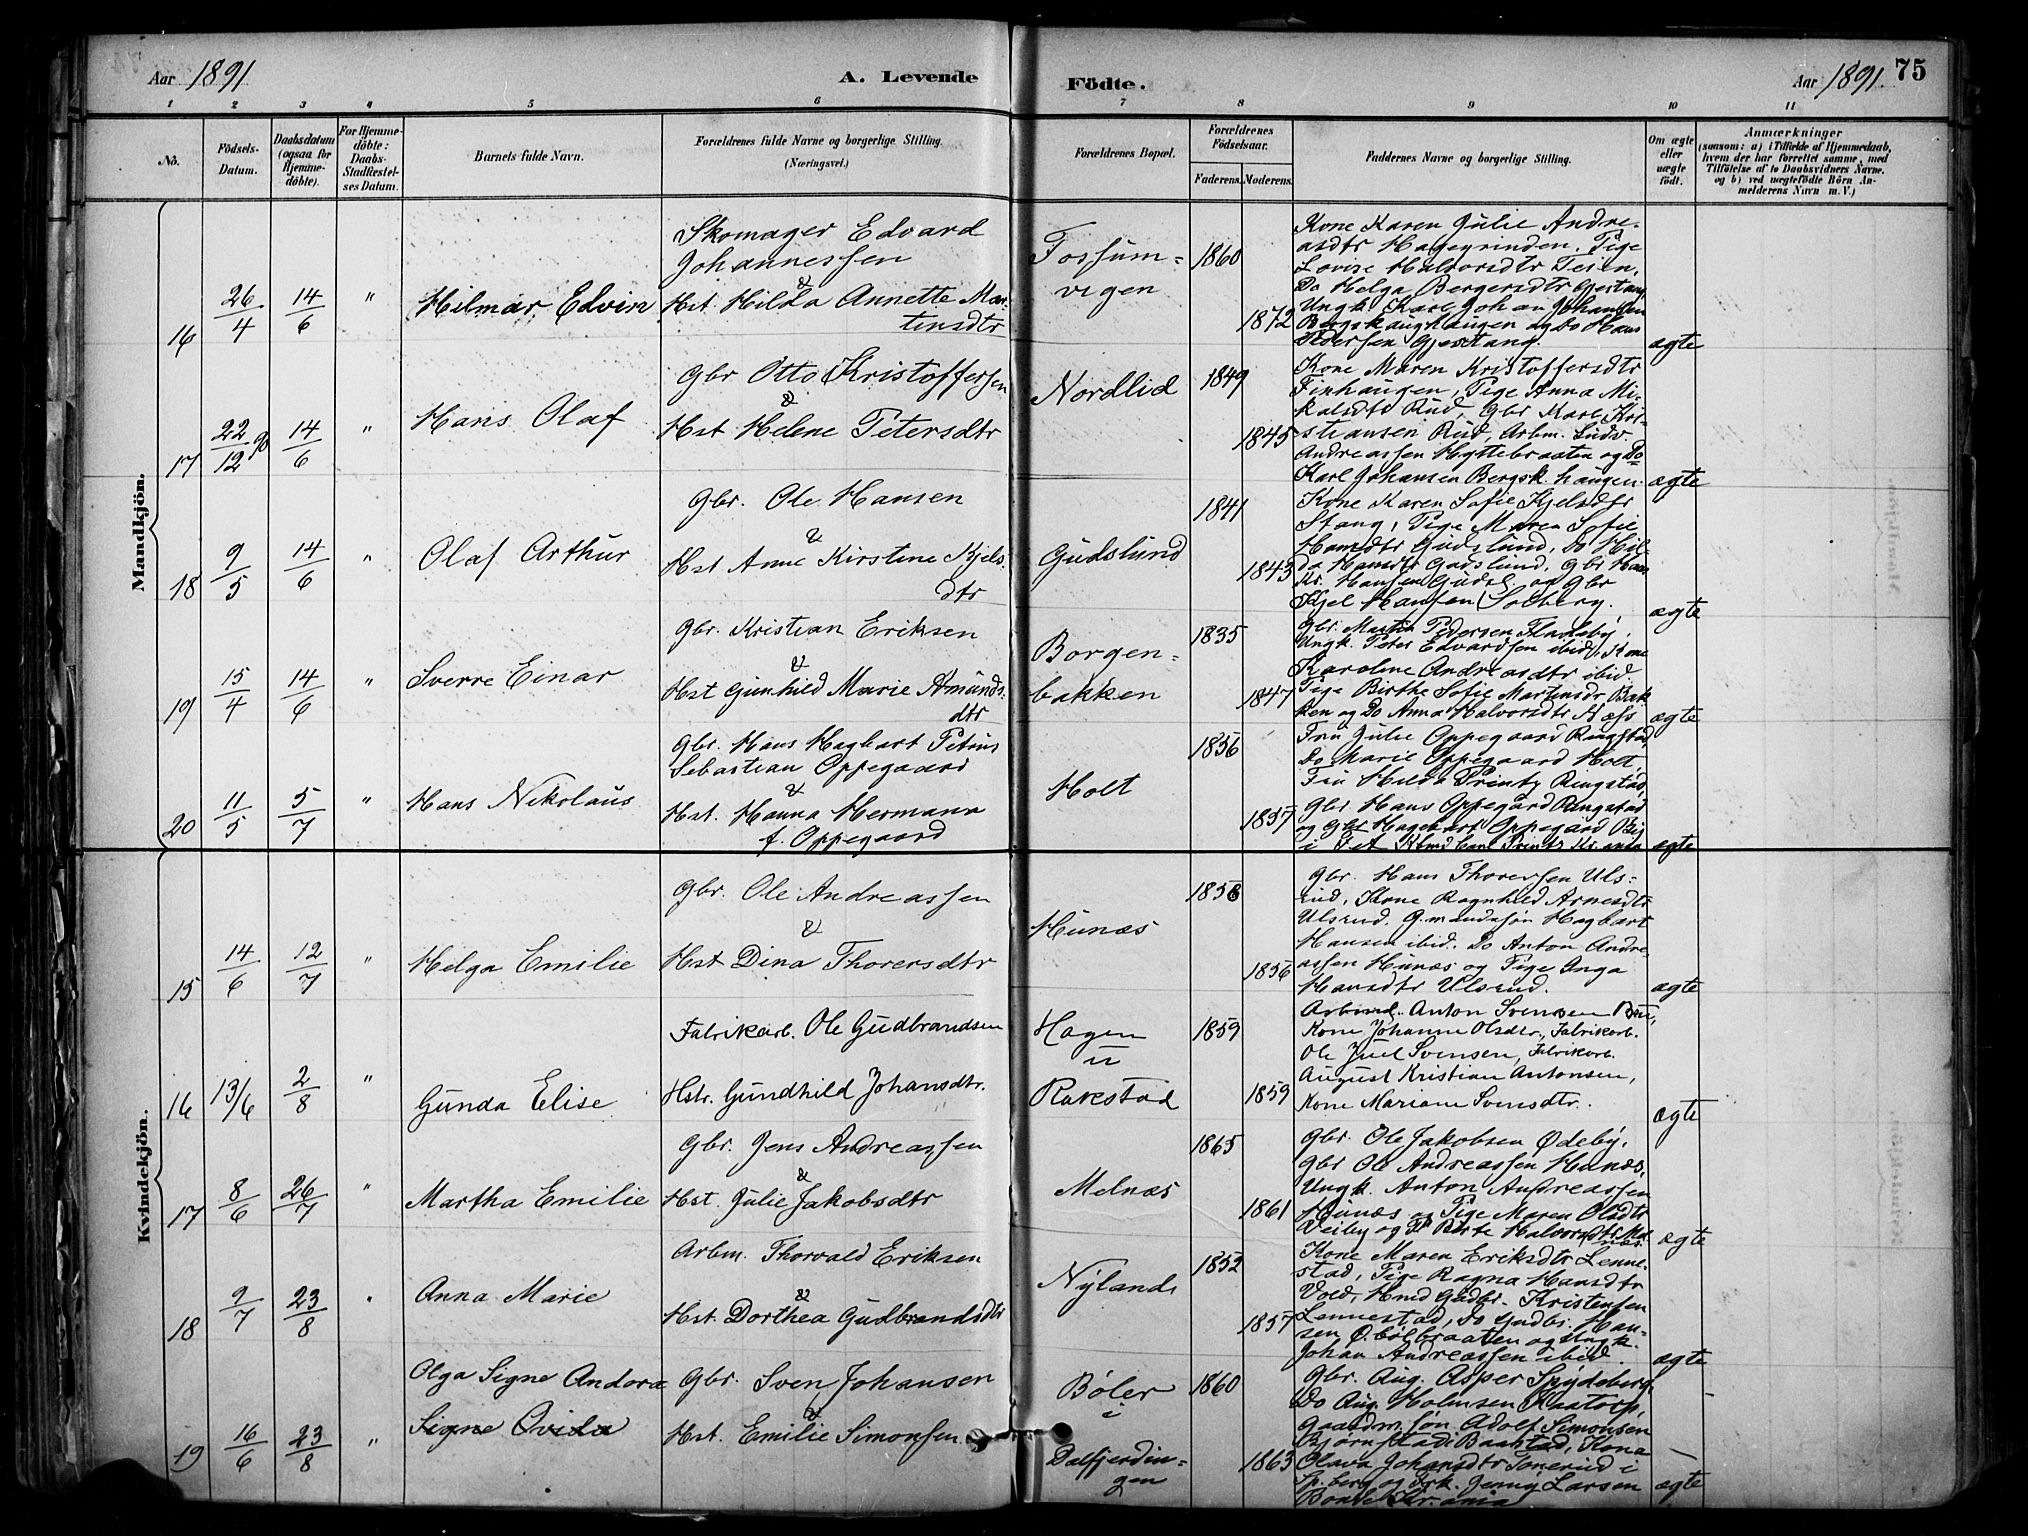 Aar 1891 A. Levende Födte. Aar 1891. 75
1 2 3 4 5 6 7 8 9 10 11
No.
Födsels-Datum.
Daabsdatum (ogsaa for Hjemme-döbte).
For Hjemme-döbte: Daabs-Stadfæstel-ses Datum.
Barnets fulde Navn.
Forældrenes fulde Navne og borgerlige Stilling. (Næringsvei.)
Forældrenes Bopæl.
Forældrenes Födselsaar.
Faderens. Moderens.
Faddernes Navne og borgerlige Stilling.
Om ægte eller uægte födt.
Anmærkninger
(saasom: a) i Tilfælde af Hjemmedaab,
hvem der har forrettet samme, med
Tilföielse af to Daabsvidners Navne,
og b) ved uægtefödte Börn An-
melderens Navn m. V.)
Mandkjön.
16 26/4 14/6 " Hilmar Edvin
Skomager Edvard
Johannessen
&
Hst. Hilda Annette Mar-
tinsdtr
Fossum-
vigen
1860
1872
Kone Karen Julie Andre-
asdtr Hagegrinden, Pige
Lovise Halvorsdtr Teien,
Do Helga Bergersdtr Gjestang
Ungk. Karl Johan Johansen
Bergskaughaugen og Do Hans
Pedersen Gjestang.
ægte
17 22/12 90 14/6 " Hans Olaf
Gbr Otto Kristoffersen
&
Hst Helene Petersdtr
Nordlid
1849
1845
Kone Maren Kristoffersdtr
Finhaugen, Pige Anna Mi-
kalsdtr Rud, Gbr Karl Kri-
stiansen Rud, Arbm. Ludv.
Andreassen Hyttebraaten og Do
Karl Johansen Bergsk. haugen.
ægte
18 9/5 14/6 " Olaf Arthur
Gbr. Ole Hansen
&
Hst Anne Kirstine Kjels-
dtr
Gudslund
1841
1843
Kone Karen Sofie Kjelsdtr
Stang, Pige Maren Sofie
Hansdtr Gudslund, Do Hil-
da Hansdtr Gudslund, Gbr Hans
Kr. Hansen Gudsl. og Gbr
Kjel Hansen Solberg.
ægte
19 15/4 14/6 " Sverre Einar
Gbr. Kristian Eriksen
&
Hst Gunhild Marie Amunds-
dtr
Borgen-
bakken
1835
1847
Gbr. Martin Pedersen Fladeby,
Ungk. Peter Edvardsen ibid, Kone
Karoline Andreasdtr ibid.
Pige Birthe Sofie Martinsdr Bak-
ken og Do Anna Halvorsdtr Næss
ægte
20 11/5 5/7 " Hans Nikolaus
Gbr. Hans Hagbart Petrus
Sebastian Oppegaard
&
Hst. Hanna Hermana
f. Oppegaard
Holt
1856
1857
Fru Julie Oppegaard Ringstad
Do Marie Oppegaard Holt,
Frú Hilda Printz Ringstad,
Gbr Hans Oppegård Ringstad
og Gbr Hagebart Oppegaard
i Fet Printz Kr.ania
ægte
Kvindekjön.
15 14/6 12/7 " Helga Emilie
Gbr. Ole Andreassen
&
Hst Dina Thorersdtr
Hunæs
1858
1856
Gbr. Hans Thorersen Uls-
rud, Kone Ragnhild Arnesdtr
Ulsrud. G.mandssøn Hagbart
Hansen ibid. Do Anton Andre-
assen Hunæs og Pige Inga
Hansdtr Ulsrud.
ægte
16 13/6 2/8 " Gunda Elise
Fabrikarb. Ole Gudbrandsen
Hstr. Gundhild Johansdtr.
Hagen
u
Rakestad
1859
1859
Arbmd. Anton Svensen Bru,
Kone Johanne Olsdtr, Fabrikarb.
Ole Juel Svensen, Fabrikarb.
August Kristian Antonsen,
Kone Mariane Svensdtr.
ægte
17 8/6 26/7 " Martha Emilie
Gbr. Jens Andreassen
&
Hst. Julie Jakobsdtr
Melnæs
1865
1861
Gbr. Ole Jakobsen Ødeby,
Gbr Ole Andreassen Hunæs,
Ungk. Anton Andreassen
Hunæs og Pige Maren Olsdtr
Veiby og P. Berte Halvorsdtr Mel-
næs.
ægte
18 9/7 23/8 " Anna Marie
Arbm. Thorvald Eriksen
&
Hst. Dorthea Gudbrandsdtr
Nylands
1852
1857
Kone Maren Eriksdtr Lenne-
stad, Pige Ragna Hansdtr
Vold, Hmd Gudbr. Kristensen
Lennestad, Do Gudbr. Han-
sen Ø.bølbraaten og Ungk.
Johan Andreassen ibid.
ægte
19 16/6 23/8 " Olga Signe Andora
Signe Ovida
Gbr. Sven Johansen
&
Hst. Emilie Simonsen
Bøler
i
Dalfjerdin-
gen
1860
1863
Gbr. Aug. Asper Spydeberg
Do Aug. Holmsen Kaatorp,
Gaardm.søn Adolf Simonsen
Bjørnstad Baastad, Kone
Olava Johansdtr Tonerud i
Sp.berg og Frk. Jenny Larsen
Bonde Kr.ania
ægte